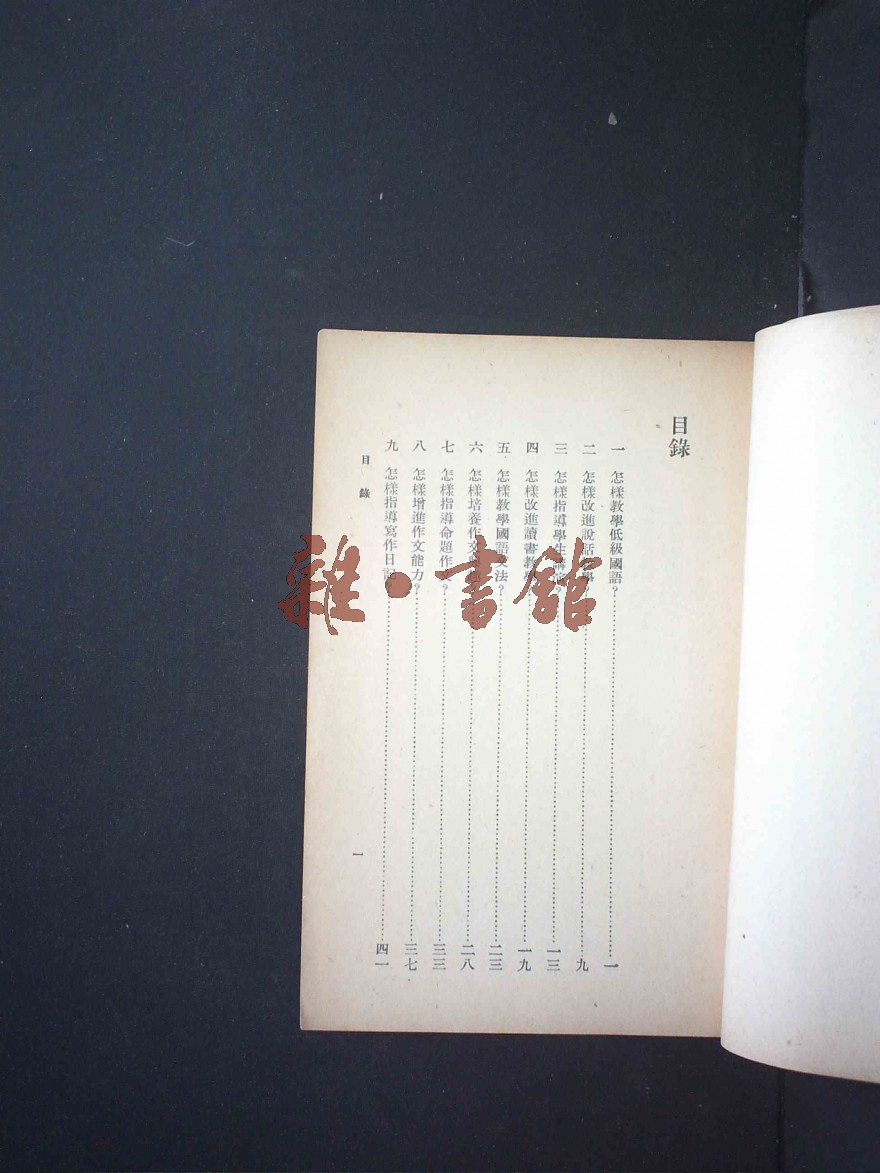 目錄
一 怎樣教學低級國語？ 一
二 怎樣改進說話教學？ 九
三 怎樣指導學生 一三
四 怎樣改進讀書教學 一九
五 怎樣教學國語文法？ 二三
六 怎樣培養作文 二八
七 怎樣指導命題作文？ 三三
八 怎樣增進作文能力？ 三七
九 怎樣指導寫作日記 四一
目錄
一
雜·書館